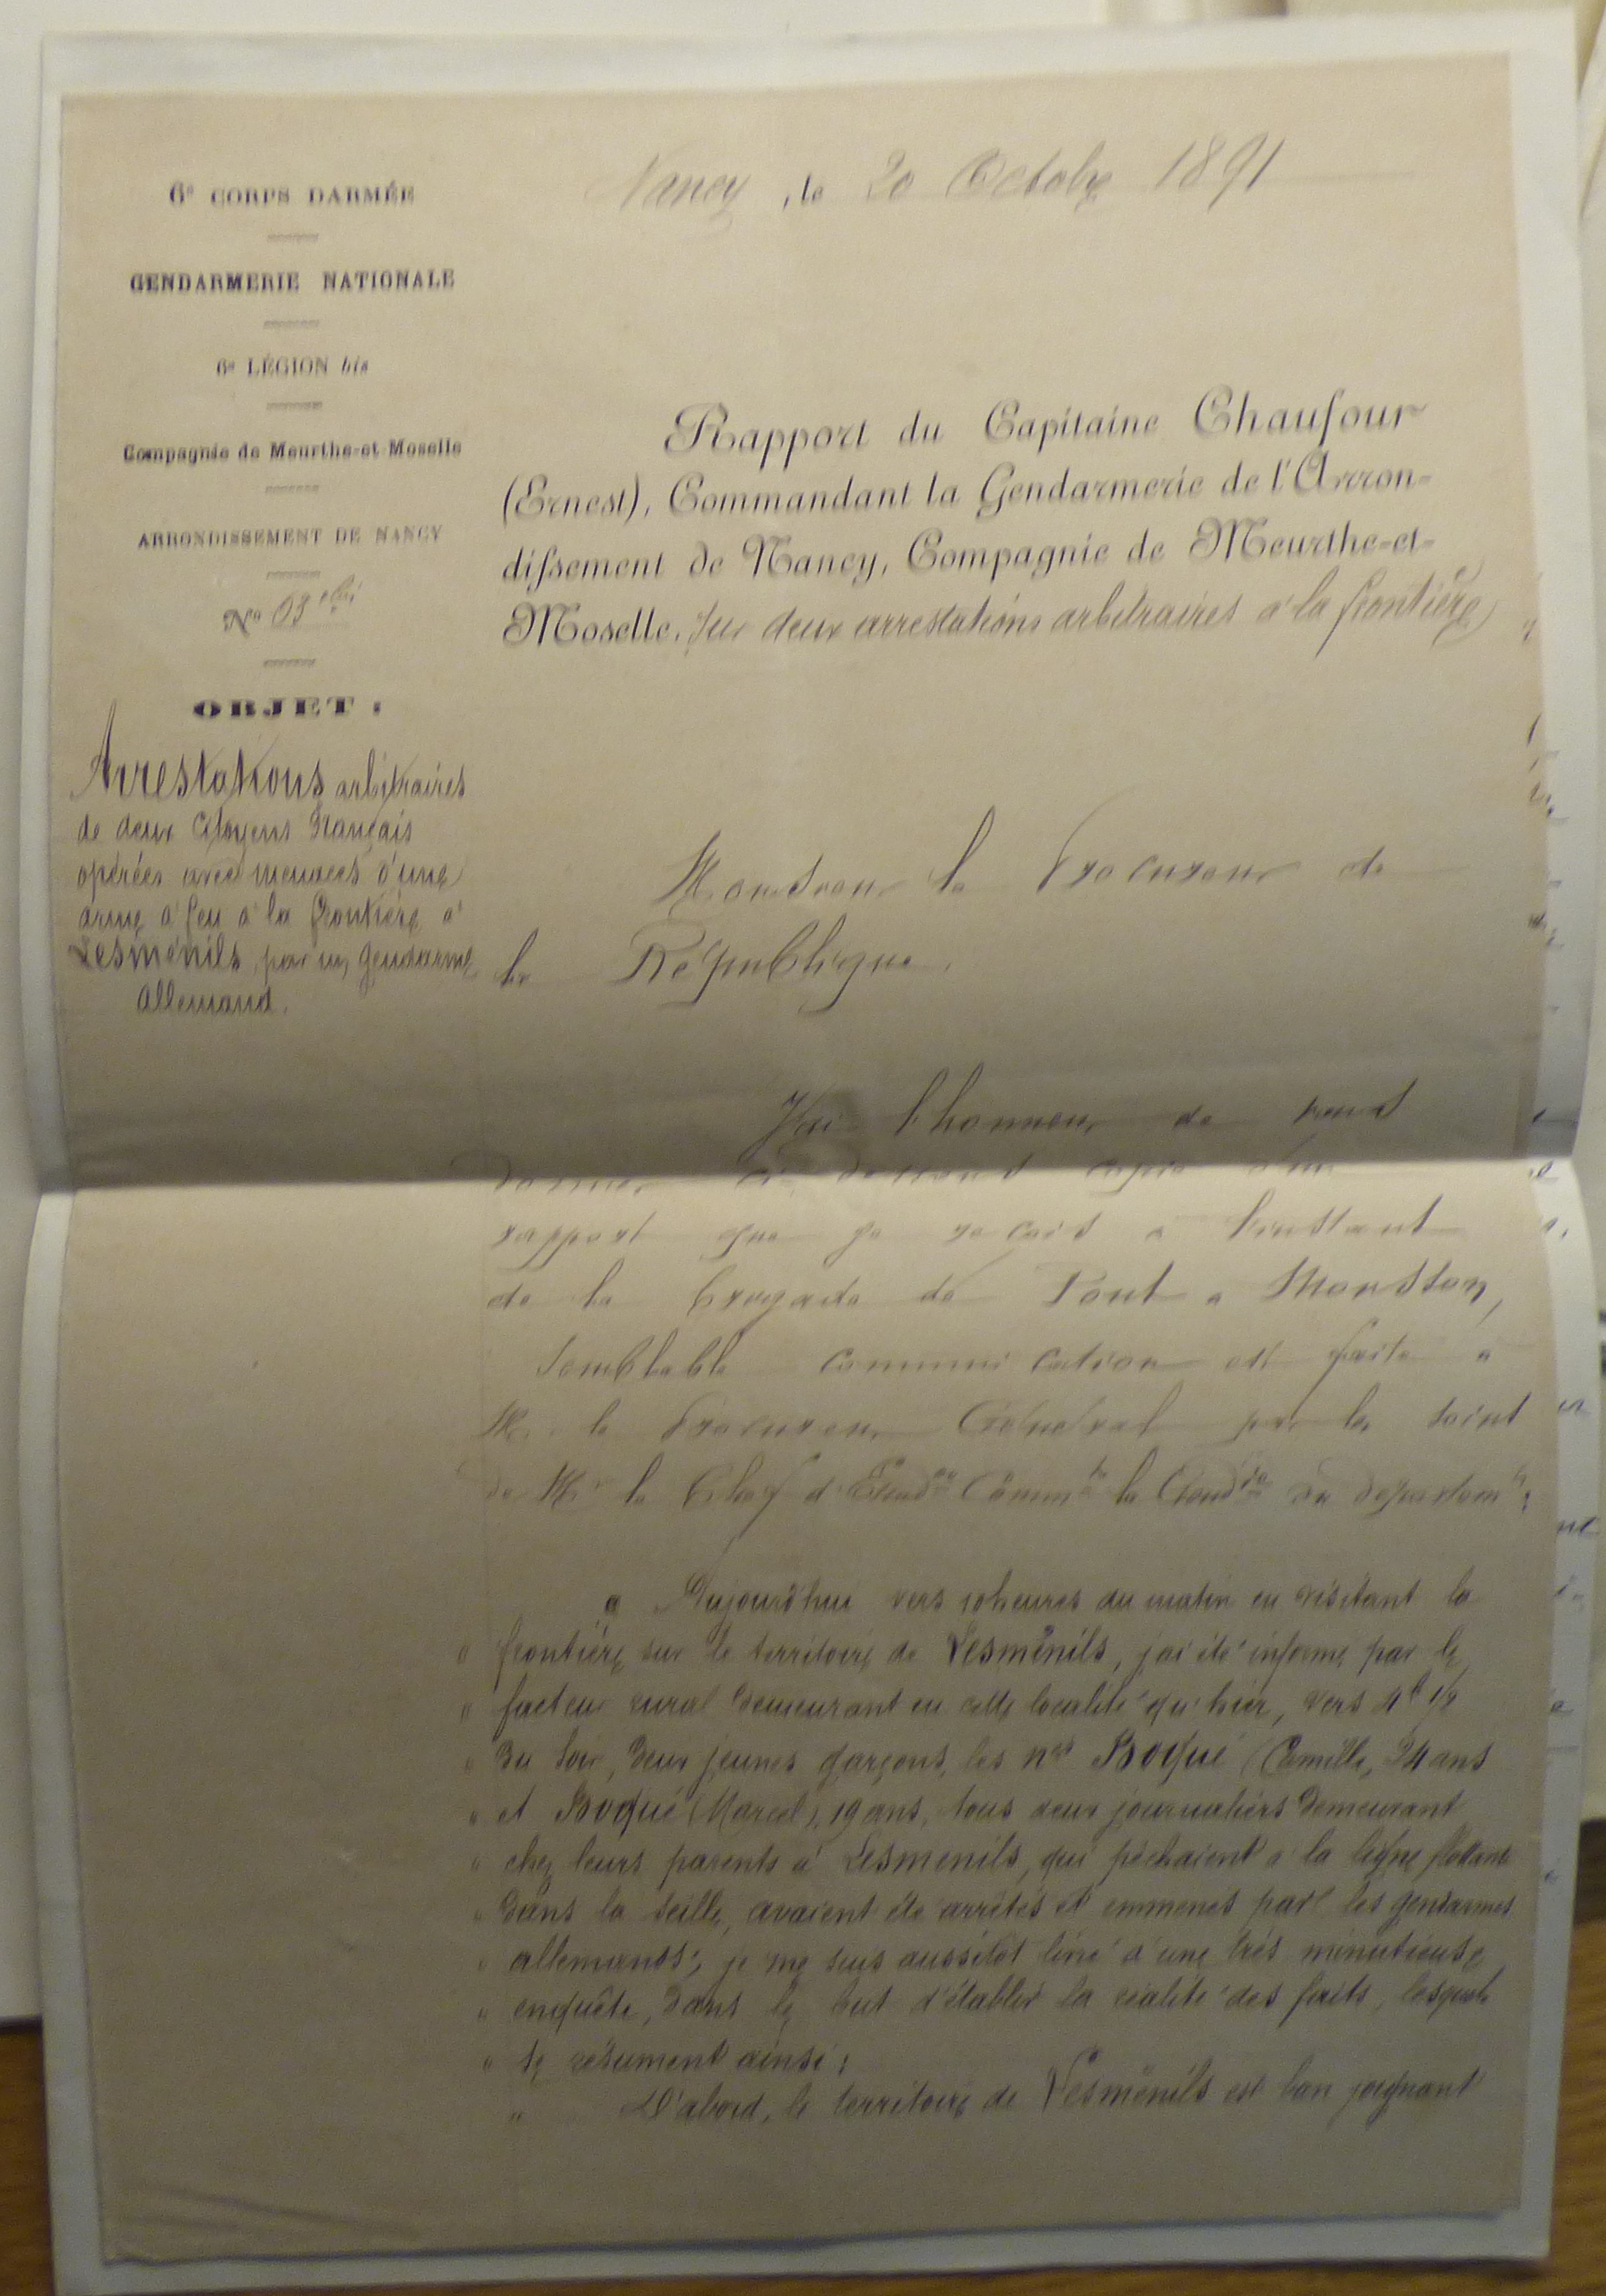 6e CORPS D'ARMÉE
GENDARMERIE NATIONALE
6e LÉGION bis
Compagnie de Meurthe-et-Moselle
ARRONDISSEMENT DE NANCY
No 03
OBJET :
Arrestations arbitraires
de deux citoyens Français
opérées avec menaces d'une
arme à feu à la frontière à
Lesménils, par un gendarme
allemand.
Nancy, le 20 Octobre 1891
Rapport du Capitaine Chaufour
(Ernest), Commandant la Gendarmerie de l'Arron-
dissement de Nancy, Compagnie de Meurthe-et-
Moselle, sur deux arrestations arbitraires à la frontière
Monsieur le Procureur de
la République,
J'ai l'honneur de vous
donner ci-dessous copie d'un
rapport que je reçois à l'instant
de la brigade de Pont à Mousson,
Semblable communication est faite à
M. le Procureur Général par les soins
de Mr le Chef d'Escadon Commt la Gendie du départemt :
" Aujourd'hui vers 10 heures du matin en visitant la
" frontière sur le territoire de Lesménils, j'ai été informé par le
" facteur rural demeurant en cette localité qu'hier, vers 4h 1/2
" du soir, deux jeunes garçons, les nés Boqué (Camille, 24 ans
" et Boqué (Marcel), 19 ans, tous deux journaliers demeurant
" chez leurs parents à Lesménils, qui pêchaient à la ligne flottante
" dans la Seille, avaient été arrêtés et emmenés par les gendarmes
" allemands ; je me suis aussitôt livré à une très minutieuse
" enquête, dans le but d'établir la réalité des faits, lesquels
" se résument ainsi :
" D'abord, le territoire de Lesménils est bon joignant